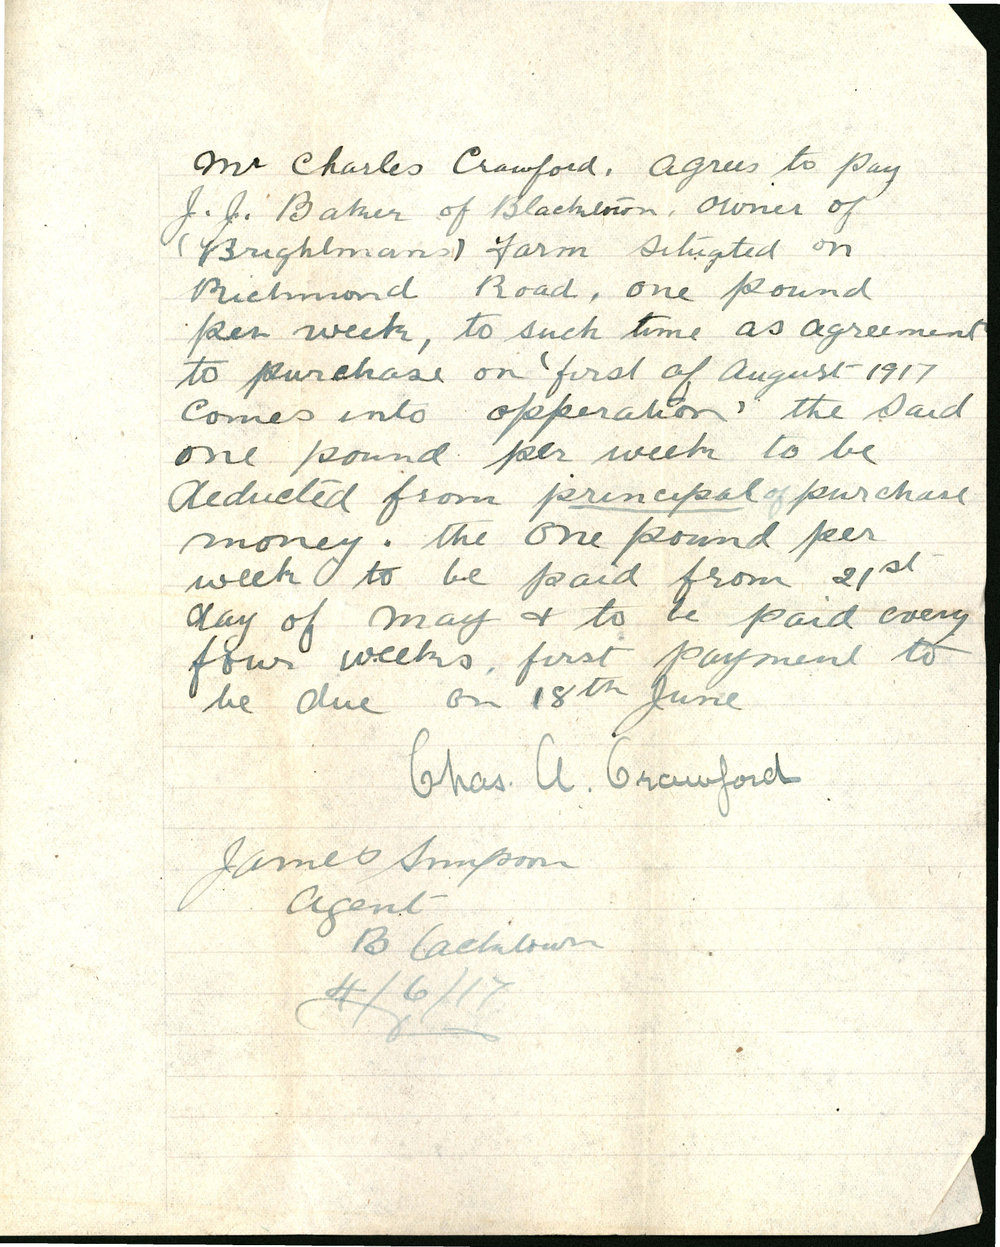 Mr Charles Crawford. agrees to pay
J. J. Baker of Blacktown. owner of
(Brightmans) Farm situated on
Richmond Road, one pound
per week, to such time as agreement
to purchase on 'first of August 1917
comes into opperation' the said
one pound per week to be
deducted from principal of purchase
money. the one pound per
week to be paid from 21st
day of may & to be paid every
four weeks, first payment to
be due on 18th June
Chas. A. Crawford
James Simpson
Agent
Blacktown
4/6/17